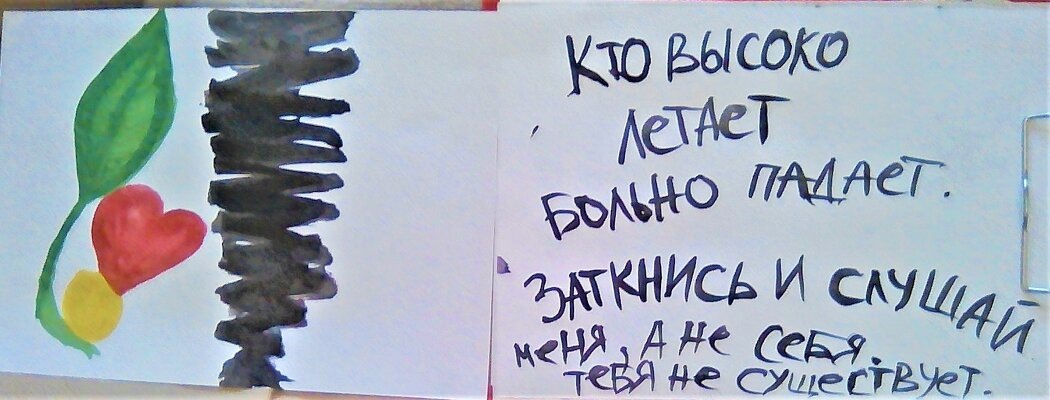 КТО ВЫСОКО
ЛЕТАЕТ
БОЛЬНО ПАДАЕТ.
ЗАТКНИСЬ И СЛУШАЙ
МЕНЯ, А НЕ СЕБЯ.
ТЕБЯ НЕ СУЩЕСТВУЕТ.